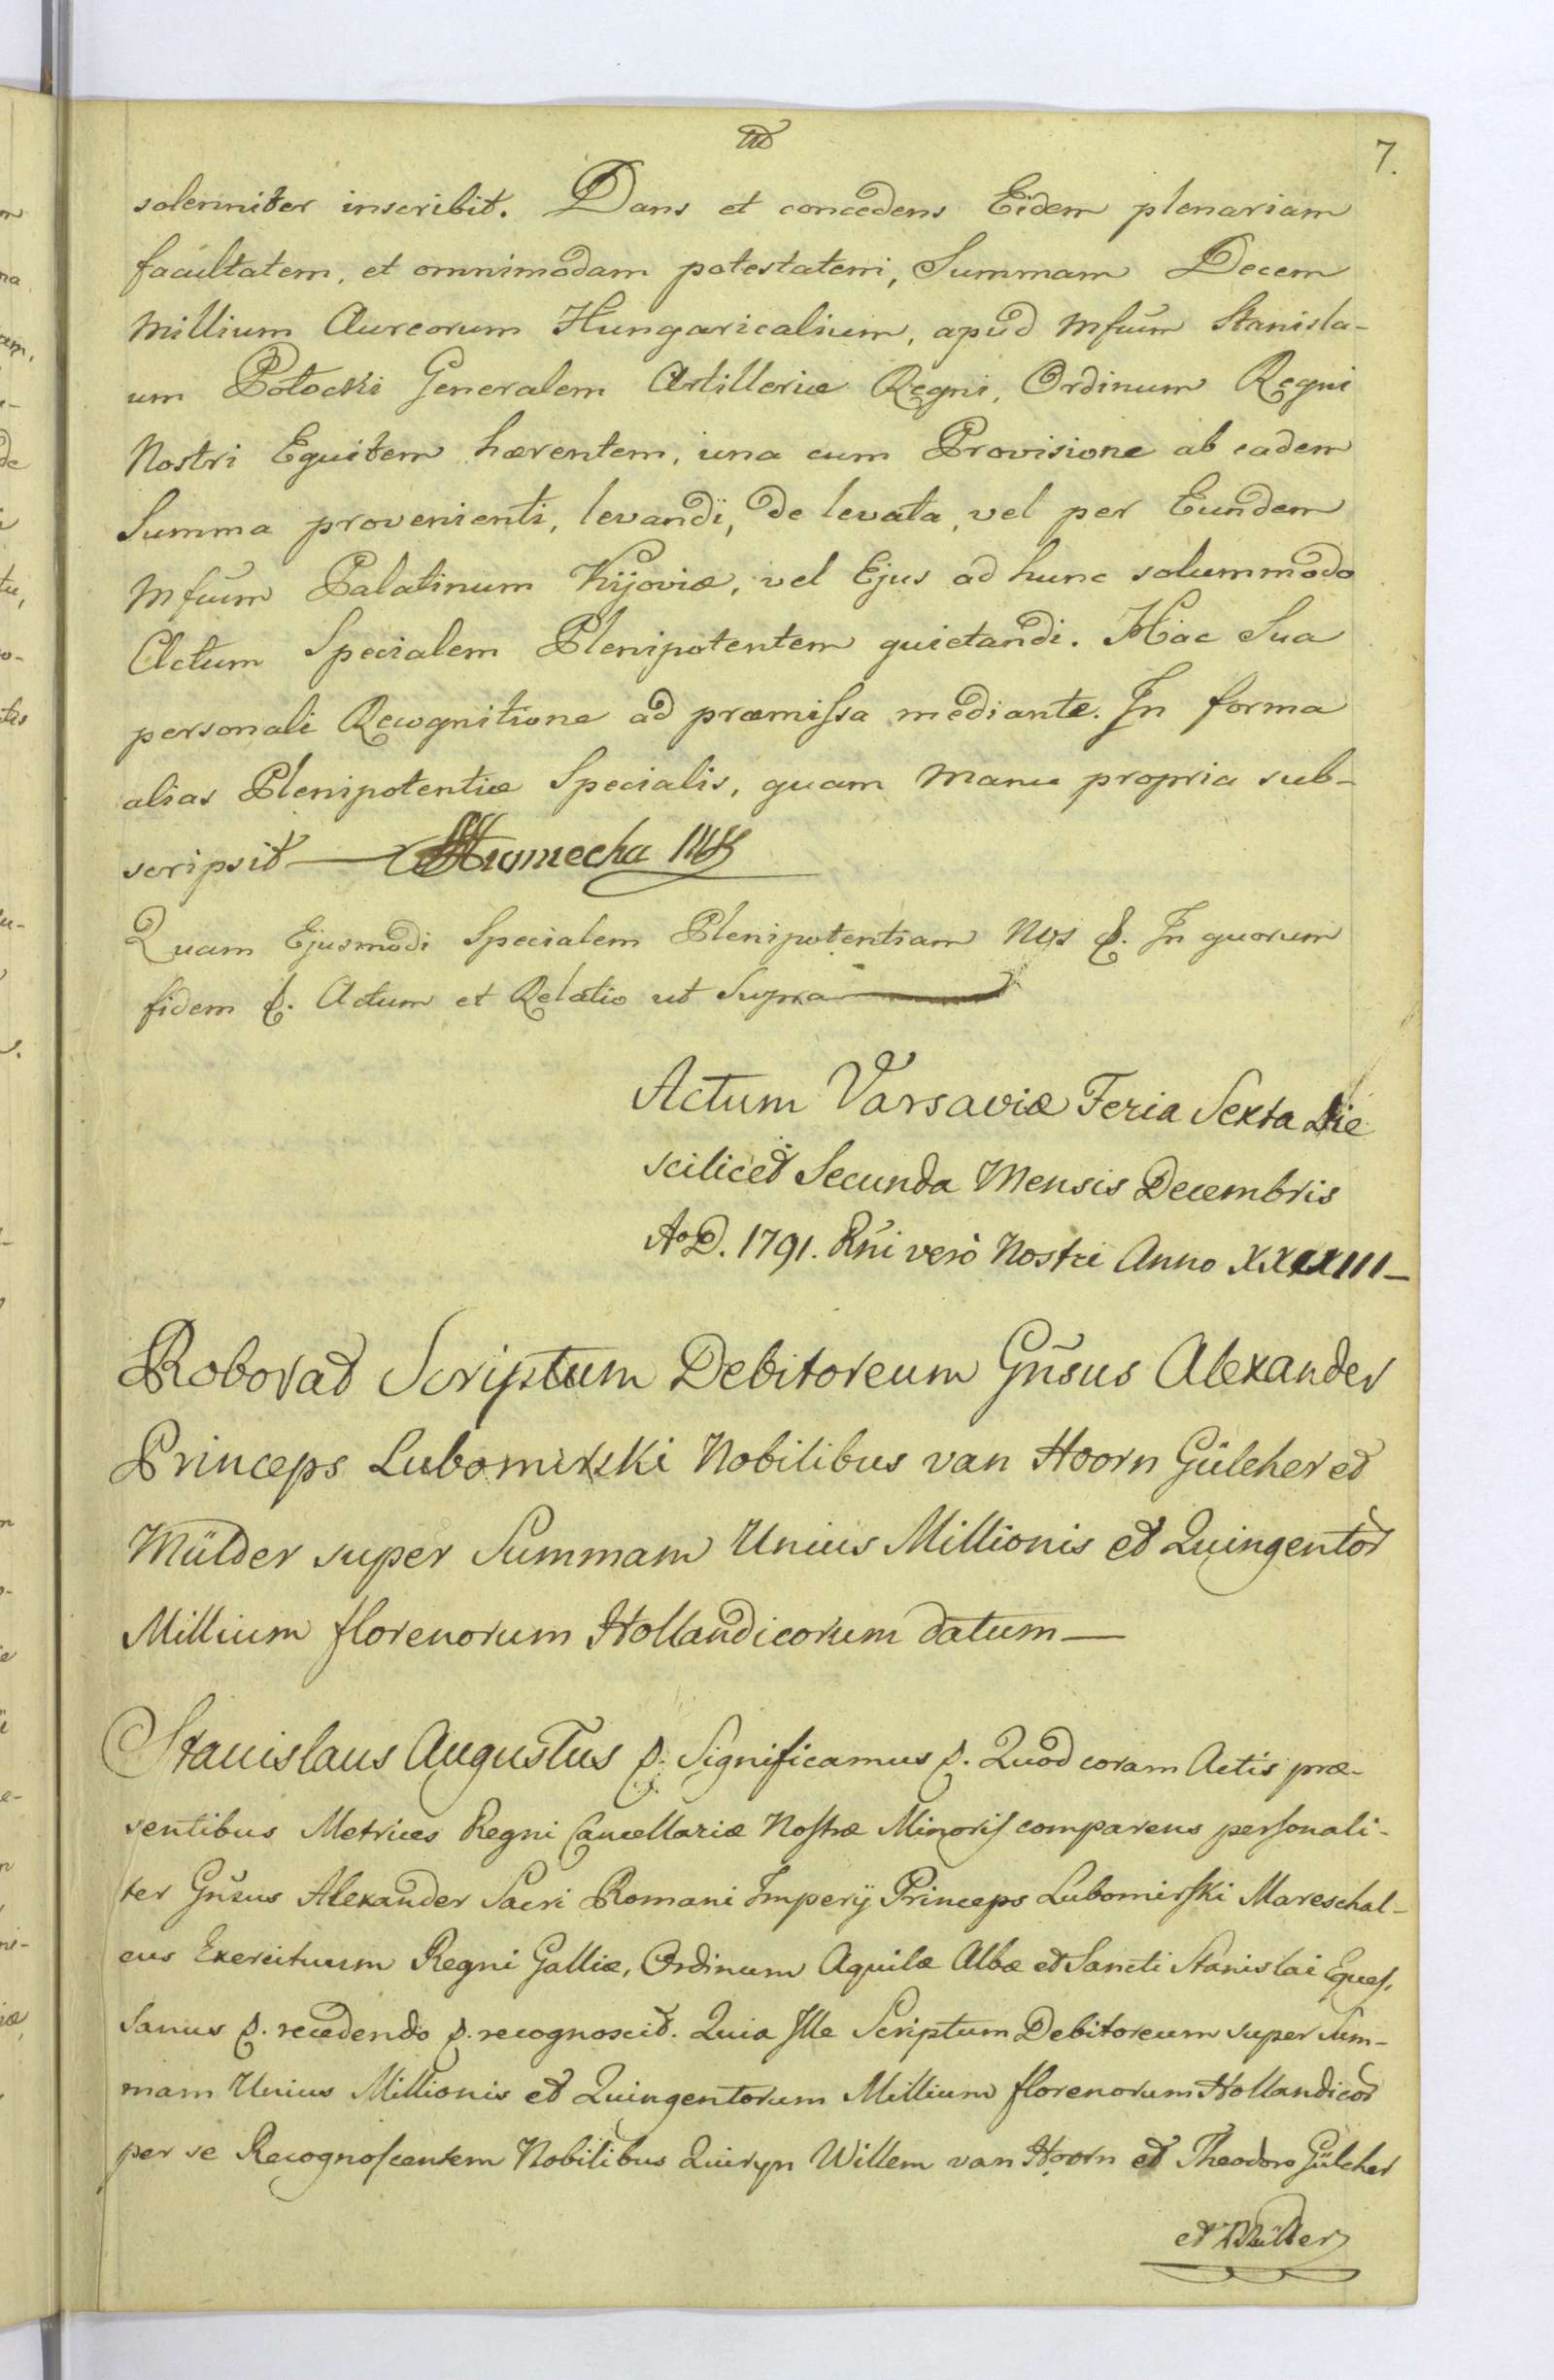 7.
solenniter inscribit. Dans et concedens Eidem plenariam
facultatem, et omnimodam potestatem, Summam Decem
Millium Aureorum Hungaricalium, apud Mfum Stanisla-
um Potocki Generalem Artilleriæ Regni, Ordinum Regni
Nostri Equitem hærentem, una cum Provisione ab eadem
Summa provenienti, levandi, de levata, vel per Eundem
Mfum Palatinum Kijoviæ, vel Ejus ad hunc solummodo
Actum Specialem Plenipotentem quietandi. Hac Sua
personali Recognitione ad præmissa mediante. In forma
alias Plenipotentiæ Specialis, quam Manu propria sub-
scripsit
Quam Ejusmodi Specialem Plenipotentiam Nos &. In quorum
fidem &. Actum et Relatio ut Supra
Actum Varsaviæ Feria Sexta Die
scilicet Secunda Mensis Decembris
Ao D. 1791. Rñi vero Nostri Anno XXVIII
Roborat Scriptum Debitoreum Gñsus Alexander
Princeps Lubomirski Nobilibus van Hoorn Gülcher et
Mülder super Summam Unius Millionis et Quingentor
Millium florenorum Hollandicorum datum
Stanislaus Augustus &. Significamus &. Quod coram Actis præ-
sentibus Metrices Regni Cancellariæ Nostræ Minoris comparens personali-
ter Gñsus Alexander Sacri Romani Imperij Princeps Lubomirski Mareschal-
cus Exercituum Regni Galliæ, Ordinum Aquilæ Albæ et Sancti Stanislai Eques,
Sanus &. recedendo &. recognoscit. Quia Ille Scriptum Debitoreum super Sum-
mam Unius Millionis et Quingentorum Millium florenorum Hollandicor
per se Recognoscentem Nobilibus Quiryn Willem van Hoorn et Theodoro Gülcher
et Mülder